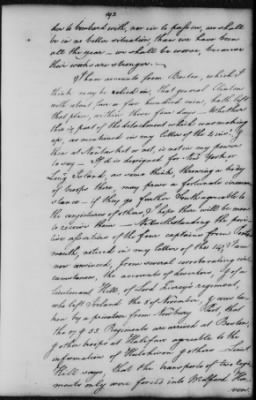 192
der to bombard with, nor is to pass on, we shall
be in no better situation, than we have been
all the year — we shall be worse, because
their works are stronger. —
I have accounts from Boston, which I
think may be relied on, that general Clinton
with about four or five hundred men, hath left
that place, within these four days — Whether
this is part of the detachment which was making
up, as mentioned in my letter of the
then at Nantasket or not, is not in my power
to say — If it is designed for New York or
Long Island, as some think, throwing a body
of troops there, may prove a fortunate circum
stance — if they go further South agreeable to
the conjectures of others, I hope there will be men
to receive them — Notwithstanding the posi
tive assertions of the four captains from Ports
mouth, noticed in my letter of the 14th, I am
now convinced, from several corroborating cir
cumstances, the accounts of deserters, & of a
lieutenant Hill, of Lord Percy's regiment,
who left Ireland the 5th of November, & was ta
ken by a privateer from Newbury Port, that
the 17 & 55 Regiments are arrived at Boston,
& other troops at Halifax agreeable to the
information of Hutchison & others — Lieut
Hill says, that the transports of two Regi
ments only were forced into Milford Ha
ven.